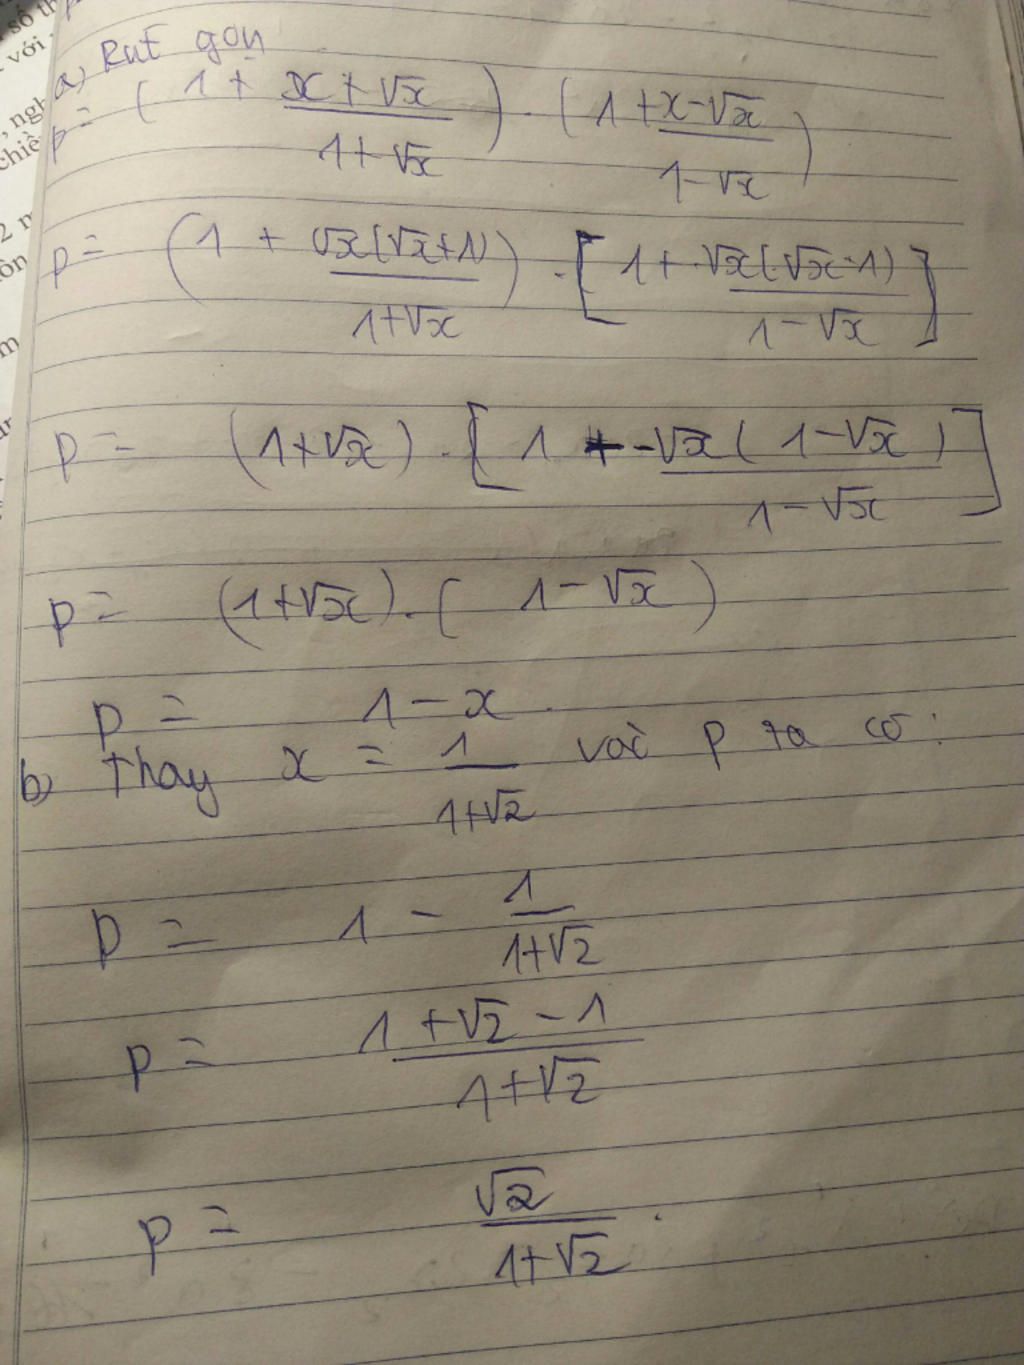 số th
với
, ngh
chiề
2 n
ôn
m
a) Rút gọn
P = (1 + x + √x / 1 + √x) . (1 + x - √x / 1 - √x)
P = (1 + √x(√x + 1) / 1 + √x) . [1 + √x(√x - 1) / 1 - √x]
P = (1 + √x) . [1 + -√x(1 - √x) / 1 - √x]
P = (1 + √x) . (1 - √x)
P = 1 - x
b) Thay x = 1 / 1 + √2 vào P ta có :
P = 1 - 1 / 1 + √2
P = 1 + √2 - 1 / 1 + √2
P = √2 / 1 + √2 .